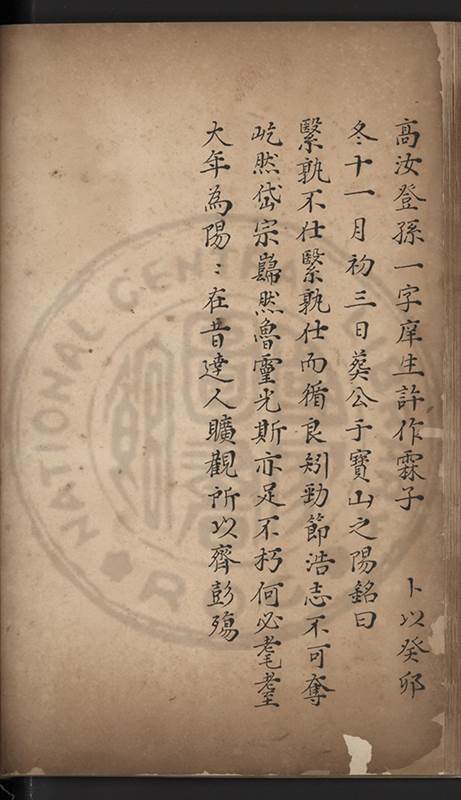 高汝登孫一字庠生許作霖子 卜以癸卯
冬十一月初三日葬公于寶山之陽銘曰
繄孰不仕繄孰仕而循良矧勁節浩志不可奪
屹然岱宗巋然魯靈光斯亦足不朽何必耄耋
大年為陽〻在昔達人曠觀所以齊彭殤
NATIONAL CENTRAL